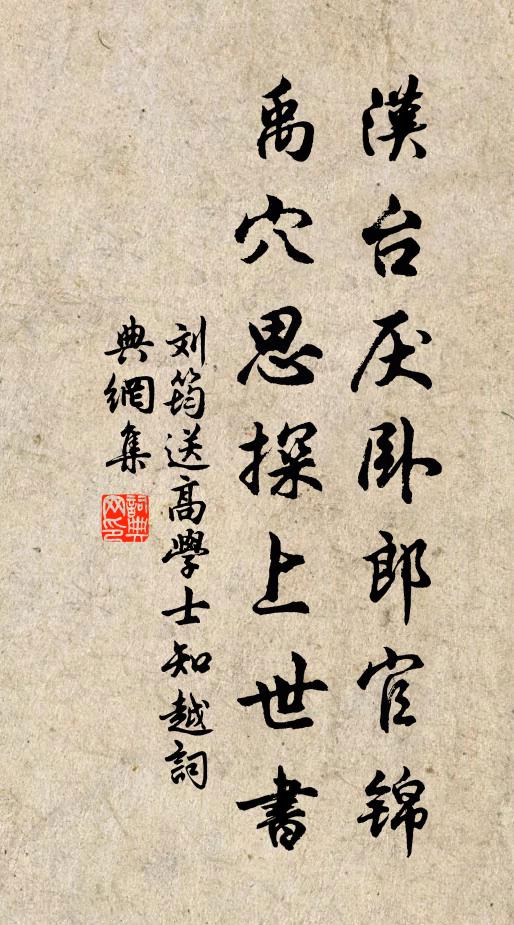 漢台厌卧郎官锦
禹穴思探上世書
刘筠送高學士知越詞
典網集
詞典網印